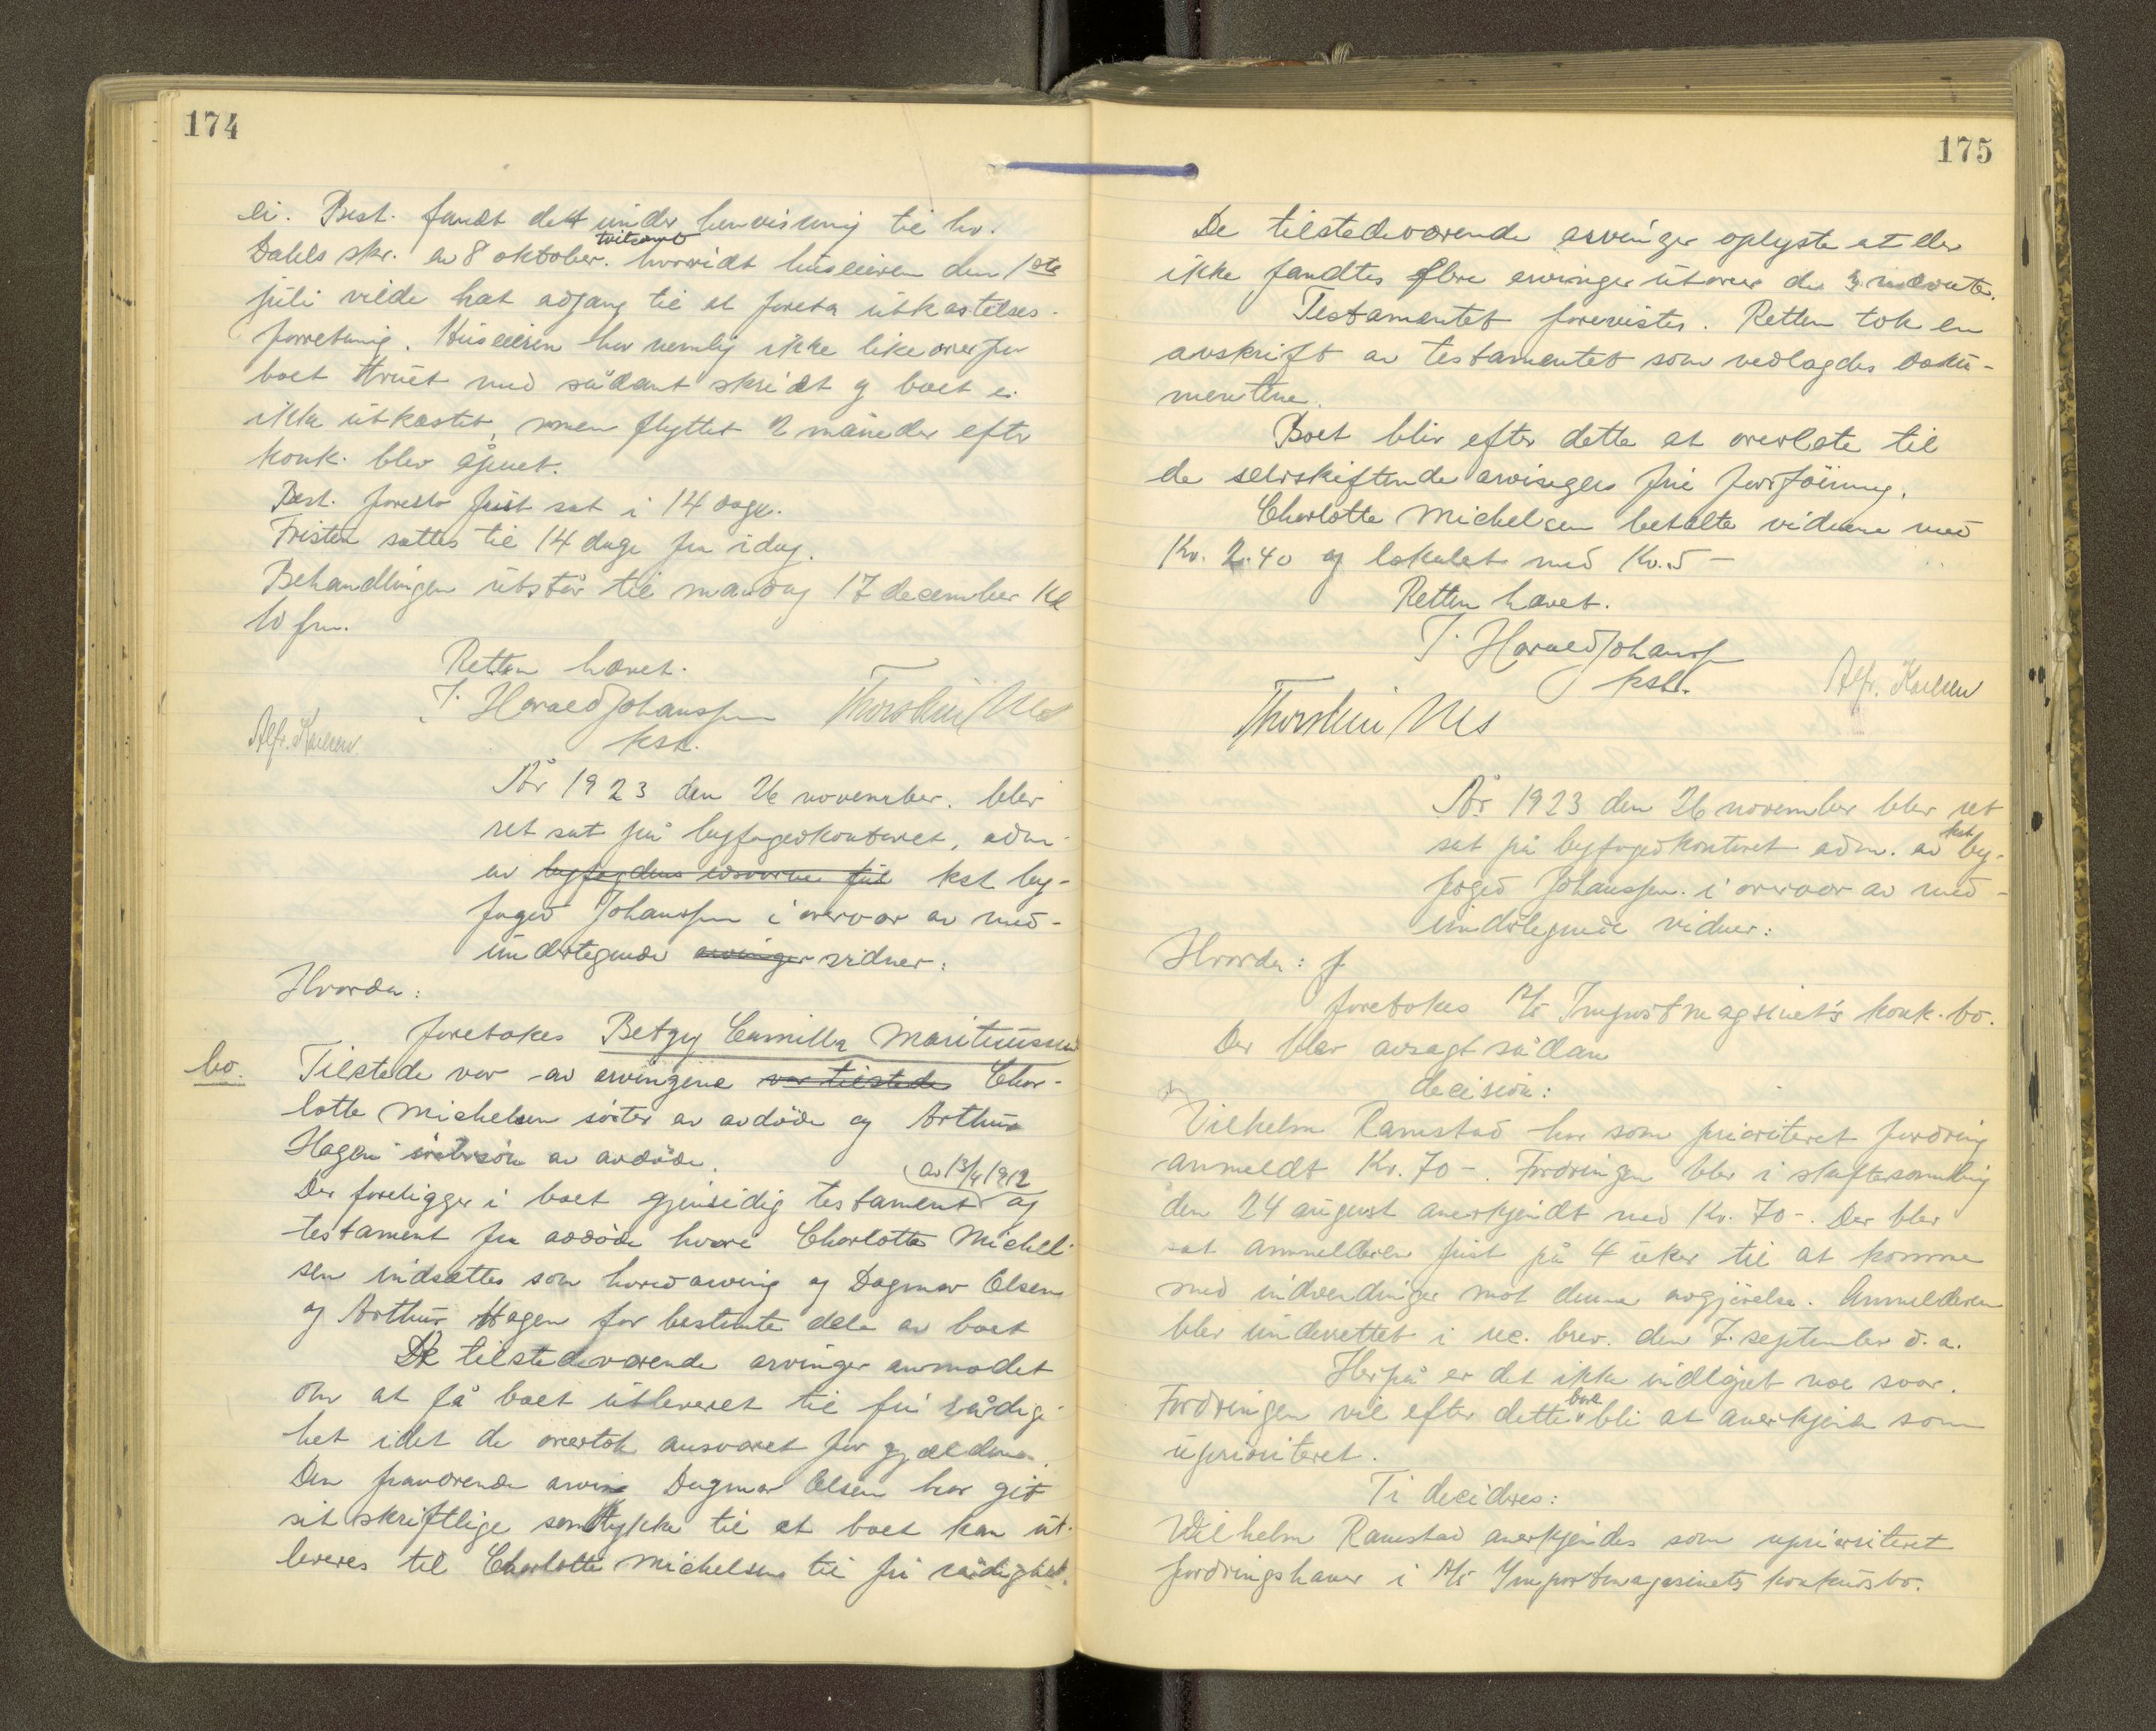 174
li. Best. fandt dett under henvisning til hr.
Dahls skr. av 8 oktober. tvilsomt hvorvidt huseieren den 1ste
juli vilde hat adgang til at foreta utkastelses-
forretning. Huseieren har nemlig ikke likeoverfor
boet truet med sådant skridt og boet er
ikke utkastet, men flyttet 2 måneder efter
konk. blev åpnet.
Best. foreslo frist sat i 14 dage.
Fristen sattes til 14 dage fra idag.
Behandlingen utstår til mandag 17 december kl
10 fm.
Retten hævet.
T. Harald Johanssen Thorstein Næs
kst.
Alfr. Karlsen
År 1923 den 26 november. blev
ret sat på byfogedkontoret, adm.
av byfogdens edsvorne fuld kst by-
foged Johanssen i overvær av med-
undertegnede arvinger vidner:
Hvorda:
foretokes Betzy Camilla Maritiussen
bo. Tilstede var av arvingene var tilstede Char-
lotte Michelsen søster av avdøde og Arthur
Hagen søstersøn av avdøde.
Der foreligger i boet gjensidig testament av 13/4 1912 og
testament fra avdøde hvori Charlotte Michel-
sen indsættes som hovedarving og Dagmar Olsen
og Arthur Hagen for bestemte dele av boet
De tilstedeværende arvinger anmodet
om at få boet utleveret til fri rådig-
het idet de overtok ansvaret for gjælden.
Den fraværende arving Dagmar Olsen har git
sit skriftlige samtykke til at boet kan ut-
leveres til Charlotte Michelsen til fri rådighet.
175
De tilstedeværende arvinger oplyste at der
ikke fandtes flere arvinger utover de 3 nævnte.
Testamentet forevistes. Retten tok en
avskrift av testamentet som vedlagdes doku-
mentene.
Boet blir efter dette at overlate til
de selvskiftende arvingers frie forføining.
Charlotte Michelsen betalte vidnene med
Kr. 2.40 og lokalet med Kr. 5 -
Retten hævet.
T. Harald Johanssen
kst.
Alfr. Karlsen
Thorstein Næs
År 1923 den 26 november blev ret
sat på byfogedkontoret adm. av kst by-
foged Johanssen. i overvær av med-
undertegnede vidner:
Hvorda:
foretokes A/S Importmagsinet's konk. bo.
Der blev avsagt sådan
decision:
Vilhelm Ramstad har som prioriteret fordring
anmeldt Kr. 70 -. Fordringen blev i skiftesamling
den 24 august anerkjendt med Kr. 70 -. Der blev
sat anmelderen frist på 4 uker til at komme
med indvendinger mot denne avgjørelse. Anmelderen
blev underrettet i rec. brev. den 7. september d. a.
Herpå er det ikke indløpet noe svar.
Fordringen vil efter dette bare bli at anerkjende som
uprioriteret.
Ti decideres:
Vilhelm Ramstad anerkjendes som uprioriteret
fordringshaver i A/S Importmagasinets konkursbo.